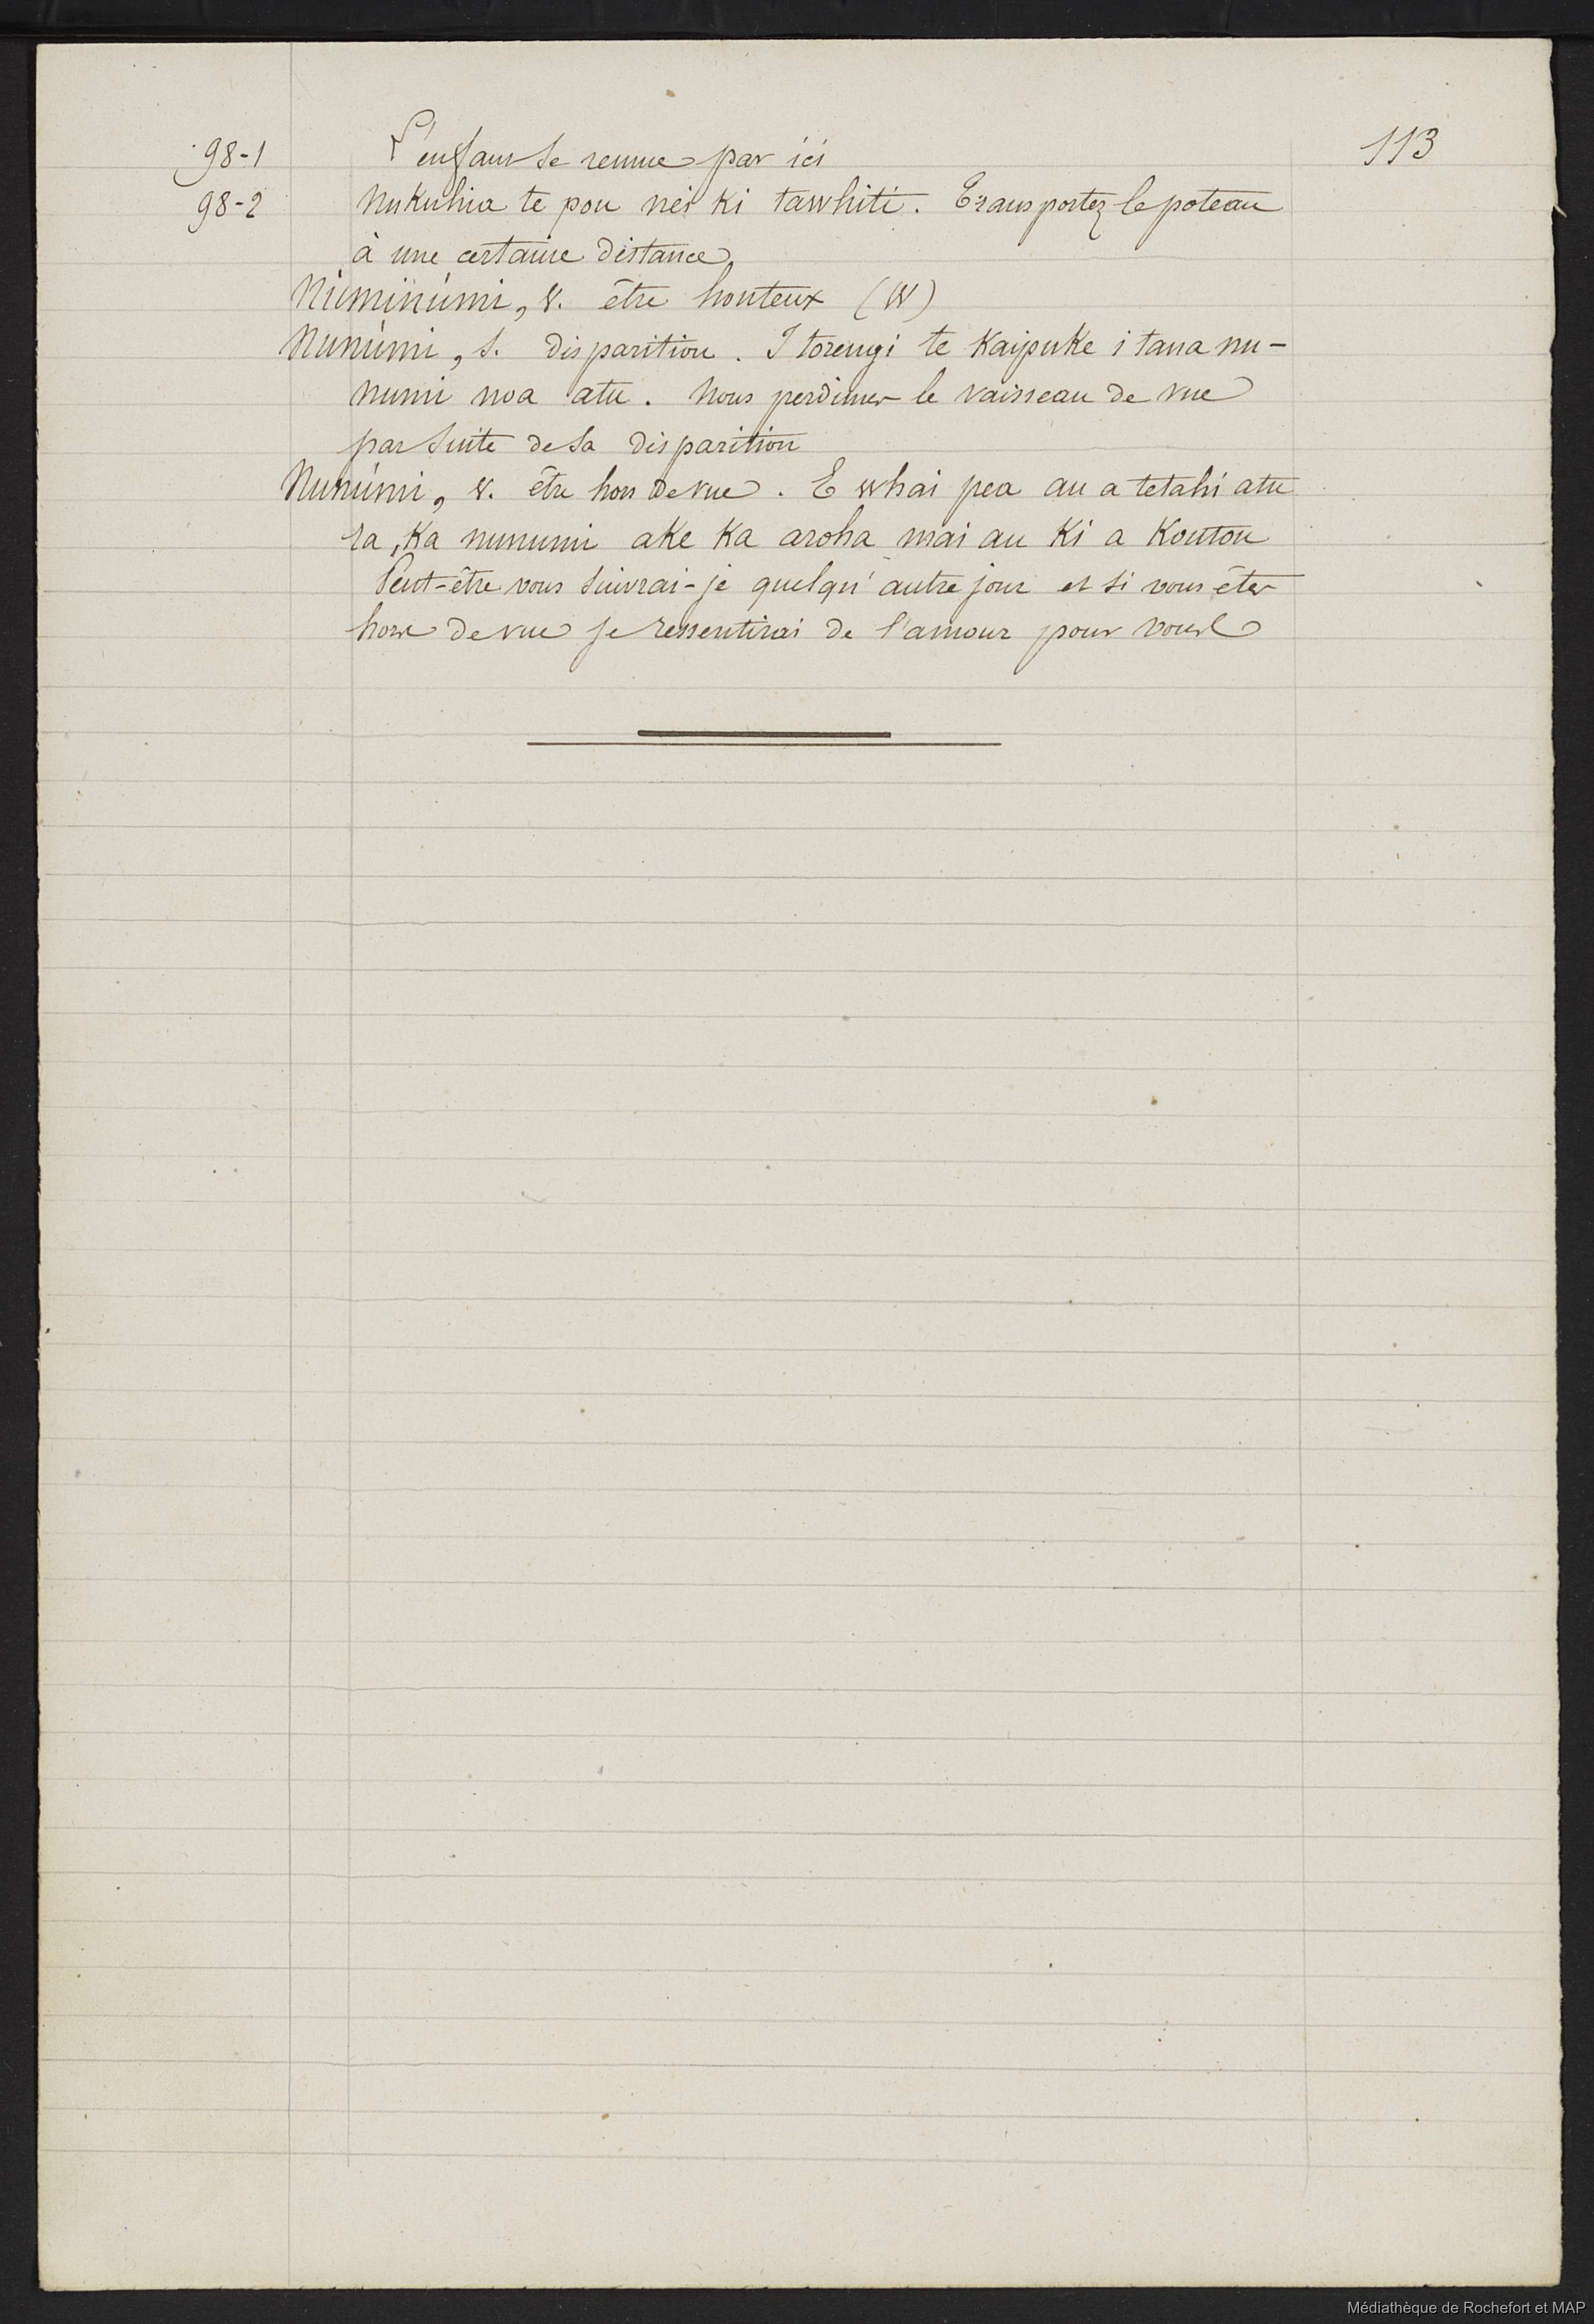 113
98-1 L'enfant se remue par ici
98-2 Nukuhia te pou nei ki tawhiti. Transportez le poteau
à une certaine distance
Nùminùmi, v. être honteux (W)
Nunùmi, s. disparition. I torengi te kaipuke i tana nu-
numi noa atu. Nous perdimes le vaisseau de vue
par suite de sa disparition
Nunùmi, v. être hors de vue. E whai pea au a tetahi atu
ra, ka nunumi ake ka aroha mai au ki a Koutou
Peut-être vous suivrai-je quelqu'autre jour et si vous êtes
hors de vue je ressentirai de l'amour pour vous
Médiathèque de Rochefort et MAP